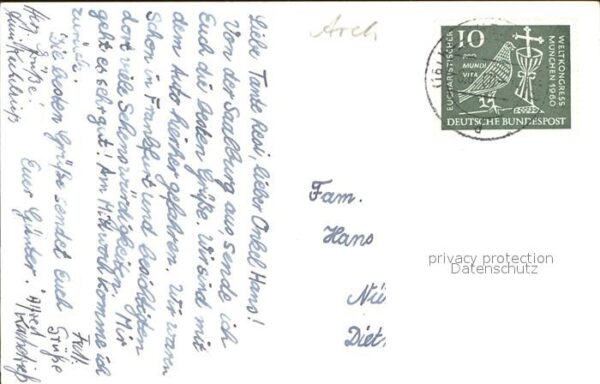 Arch
10
EUCHARISTISCHER
WELTKONGRESS
MÜNCHEN 1960
PRO
MUNDI
VITA
DEUTSCHE BUNDESPOST
Liebe Tante Resi, lieber Onkel Hans!
Von der Saalburg aus, sende ich
Euch die besten Grüße. Wir sind mit
dem Auto hierher gefahren. Wir waren
schon in Frankfurt und besichtigten
dort viele Sehenswürdigkeiten. Mir
geht es sehr gut! Am Mittwoch komme ich
zurück.
Die besten Grüße sendet Euch
Euer Günter!
Frdl. Grüße
Alfred
Herz. Grüße!
Fam.
Hans
Diet
privacy protection
Datenschutz